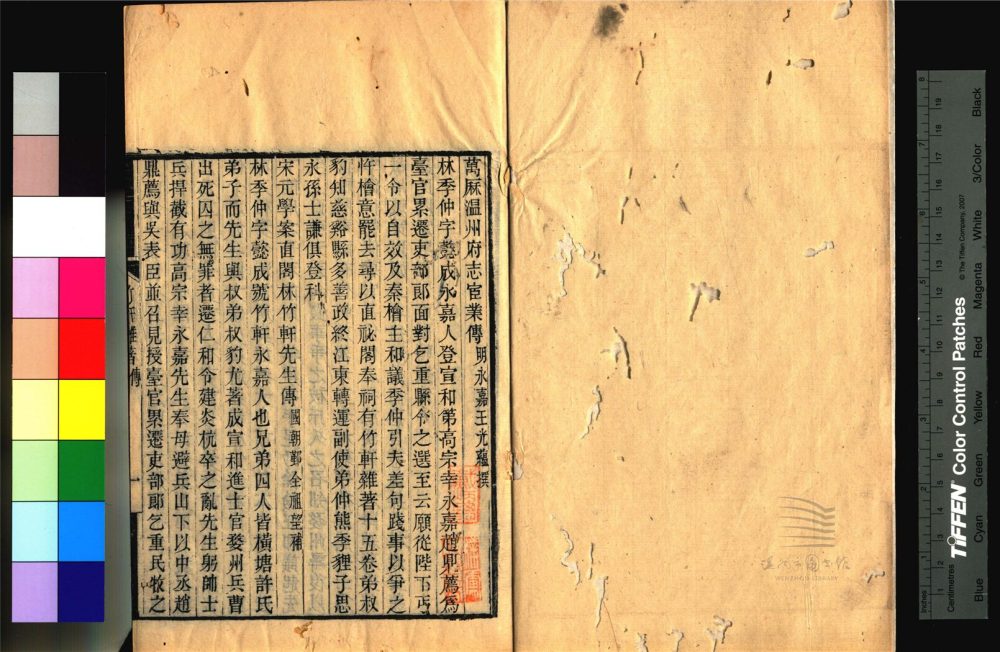 萬厤温州府志宦業傳 明永嘉王光蘊撰
林季仲字懿成永嘉人登宣和第高宗幸永嘉趙鼎薦爲
臺官累遷吏部郎面對乞重縣令之選至云願從陛下丐
一令以自效及秦檜主和議季仲引夫差句踐事以爭之
忤檜意罷去尋以直祕閣奉祠有竹軒雜著十五卷弟叔
豹知慈谿縣多善政終江東轉運副使弟仲熊季貍子思
永孫士謙俱登科
宋元學案直閣林竹軒先生傳 國朝鄞全祖望補
林季仲字懿成號竹軒永嘉人也兄弟四人皆橫塘許氏
弟子而先生與叔弟叔豹尤著成宣和進士官婺州兵曹
出死囚之無罪者遷仁和令建炎杭卒之亂先生躬帥士
兵捍截有功高宗幸永嘉先生奉母避兵山下以中丞趙
鼎薦與吳表臣並召見授臺官累遷吏部郎乞重民牧之
WENZHOU LIBRARY
TIFFEN Color Control Patches
© The Tiffen Company, 2007
Inches
Centimetres
Blue Cyan Green Yellow Red Magenta White 3/Color Black